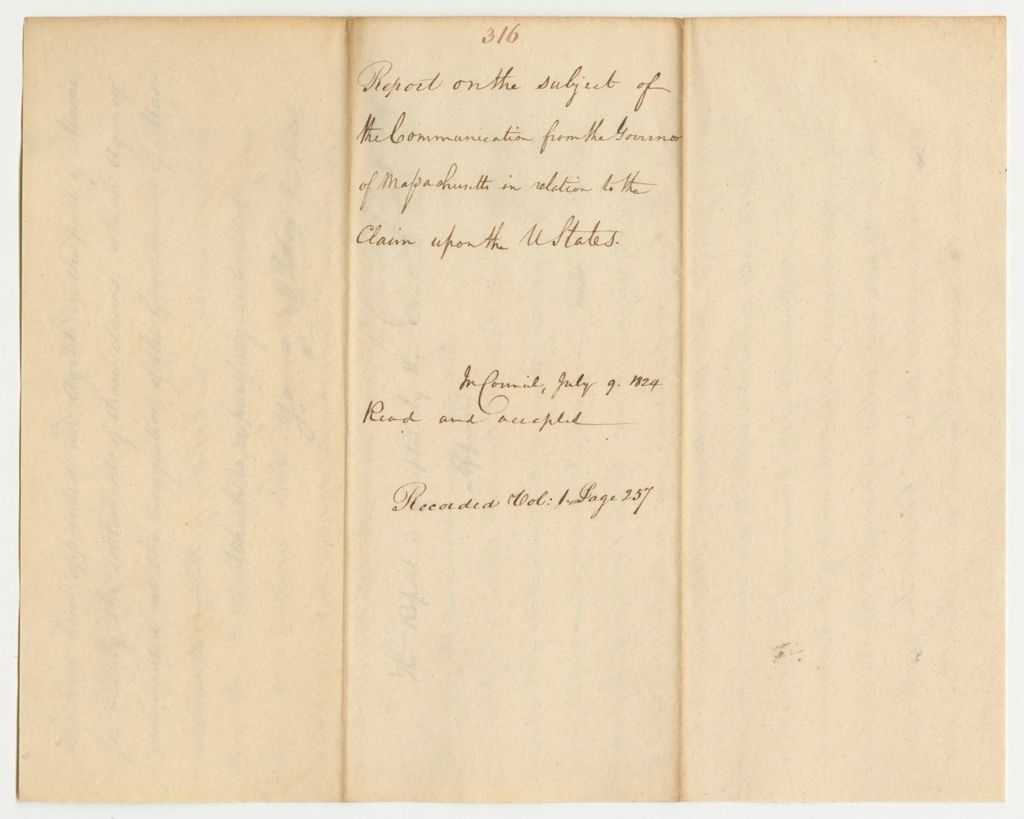 316
Report on the subject of
the Communication from the Governor
of Massachusetts in relation to the
Claim upon the U States.
In Council, July 9. 1824
Read and accepted
Recorded Vol: 1. Page 257